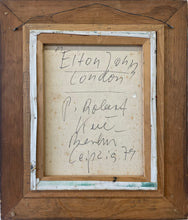 "Elton John
London"
P: Roland
Berlin
Leipzig 79